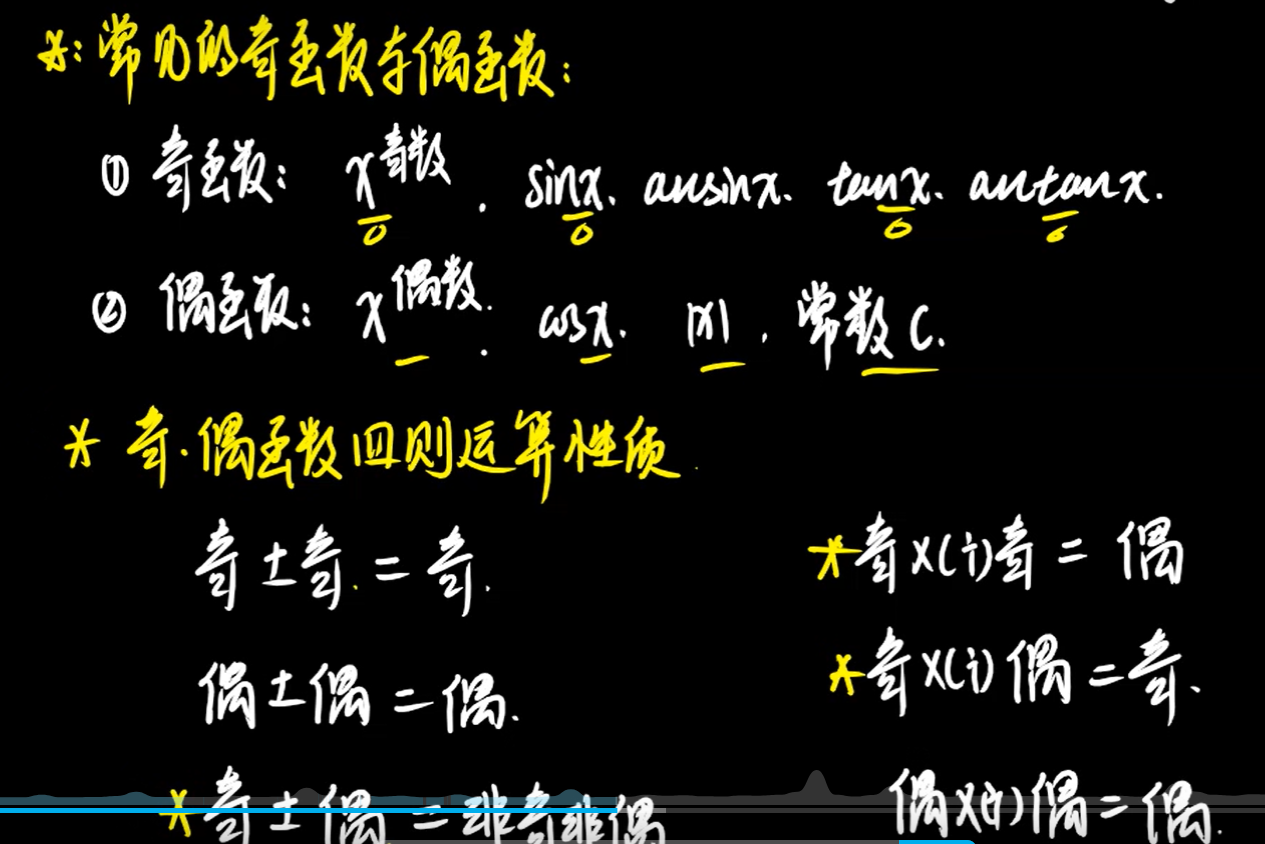 *: 常见的奇函数与偶函数:
① 奇函数: x^奇数. sinx、arcsinx、tanx、arctanx.
② 偶函数: x^偶数. cosx. |x|. 常数C.
* 奇.偶函数四则运算性质.
奇±奇=奇.
*奇×(÷)奇=偶
偶±偶=偶.
*奇×(÷)偶=奇.
*奇±偶=非奇非偶
偶×(÷)偶=偶.